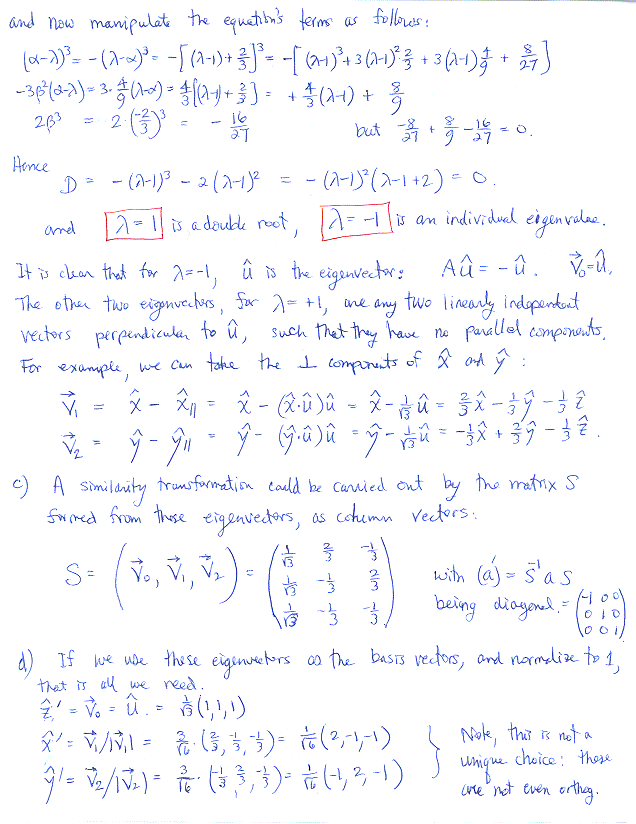 and now manipulate the equation's terms as follows:
(α-λ)³ = -(λ-α)³ = -[(λ-1)+2/3]³ = -[(λ-1)³+3(λ-1)²·2/3 + 3(λ-1)4/9 + 8/27]
-3β²(α-λ) = 3·4/9(λ-α) = 4/3[(λ-1)+2/3] = +4/3(λ-1) + 8/9
2β³ = 2·(-2/3)³ = -16/27 but -8/27 + 8/9 - 16/27 = 0.
Hence
D = -(λ-1)³ - 2(λ-1)² = -(λ-1)²(λ-1+2) = 0.
and λ=1 is a double root, λ=-1 is an individual eigenvalue.
It is clear that for λ=-1, û is the eigenvector: Aû = -û. V⃗₀=û,
The other two eigenvectors, for λ= +1, are any two linearly independent
vectors perpendicular to û, such that they have no parallel components.
For example, we can take the ⊥ components of x̂ and ŷ:
V⃗₁ = x̂ - x̂∥ = x̂ - (x̂·û)û = x̂ - 1/√3 û = 2/3 x̂ - 1/3 ŷ - 1/3 ẑ
V⃗₂ = ŷ - ŷ∥ = ŷ - (ŷ·û)û = ŷ - 1/√3 û = -1/3 x̂ + 2/3 ŷ - 1/3 ẑ.
c) A similarity transformation could be carried out by the matrix S
formed from these eigenvectors, as column vectors:
S = (V⃗₀, V⃗₁, V⃗₂) = (1/√3 2/3 -1/3
1/√3 -1/3 2/3
1/√3 -1/3 -1/3)
with (a') = S⁻¹ a S
being diagonal. = (-1 0 0
0 1 0
0 0 1)
d) If we use these eigenvectors as the basis vectors, and normalize to 1,
that is all we need.
ẑ' = V⃗₀ = û = 1/√3 (1,1,1)
x̂' = V⃗₁/|V⃗₁| = 3/√6 · (2/3, -1/3, -1/3) = 1/√6 (2,-1,-1)
ŷ' = V⃗₂/|V⃗₂| = 3/√6 · (-1/3, 2/3, -1/3) = 1/√6 (-1, 2, -1)
} Note, this is not a
unique choice: these
are not even orthog.